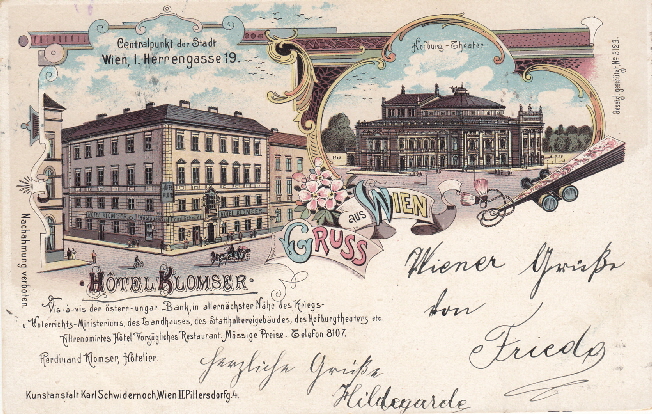 Centralpunkt der Stadt
Wien, I. Herrengasse 19.
Hofburg-Theater
Gesetzl. geschützt. No 3123.
GRUSS AUS WIEN
Nachahmung verboten
HÔTEL KLOMSER.
Vis à vis der österr-ungar. Bank, in allernächster Nähe des Kriegs-
u. Unterrichts-Ministeriums, des Landhauses, des Statthaltereigebäudes, des Hofburgtheaters etc.
Altrenomirtes Hôtel Vorzügliches Restaurant. Mässige Preise. Telefon 8107.
Ferdinand Klomser, Hôtelier.
Kunstanstalt Karl Schwidernoch, Wien II. Pillersdorfg. 4.
Wiener Grüße
von
Frieda
herzliche Grüße
Hildegarde